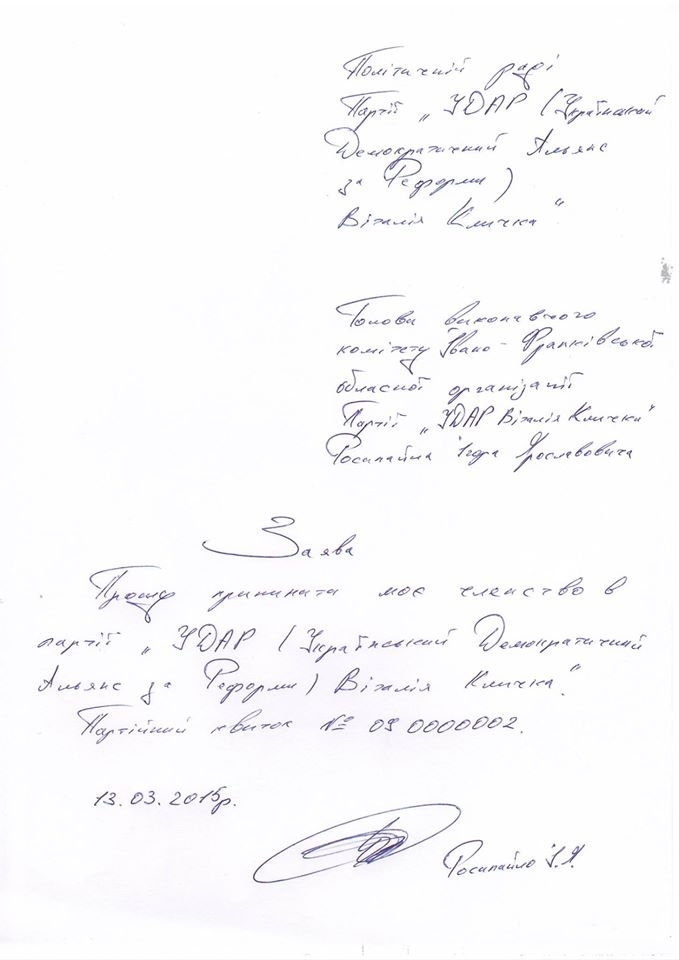 Політичній раді
Партії „УДАР (Український
Демократичний Альянс
за Реформи)
Віталія Кличка"
Голови виконавчого
комітету Івано-Франківської
обласної організації
Партії „УДАР Віталія Кличка"
Росипайла Ігоря Ярославовича
Заява
Прошу припинити моє членство в
партії „УДАР (Український Демократичний
Альянс за Реформи) Віталія Кличка".
Партійний квиток № 09 0000002.
13.03.2015р.
Росипайло І.Я.